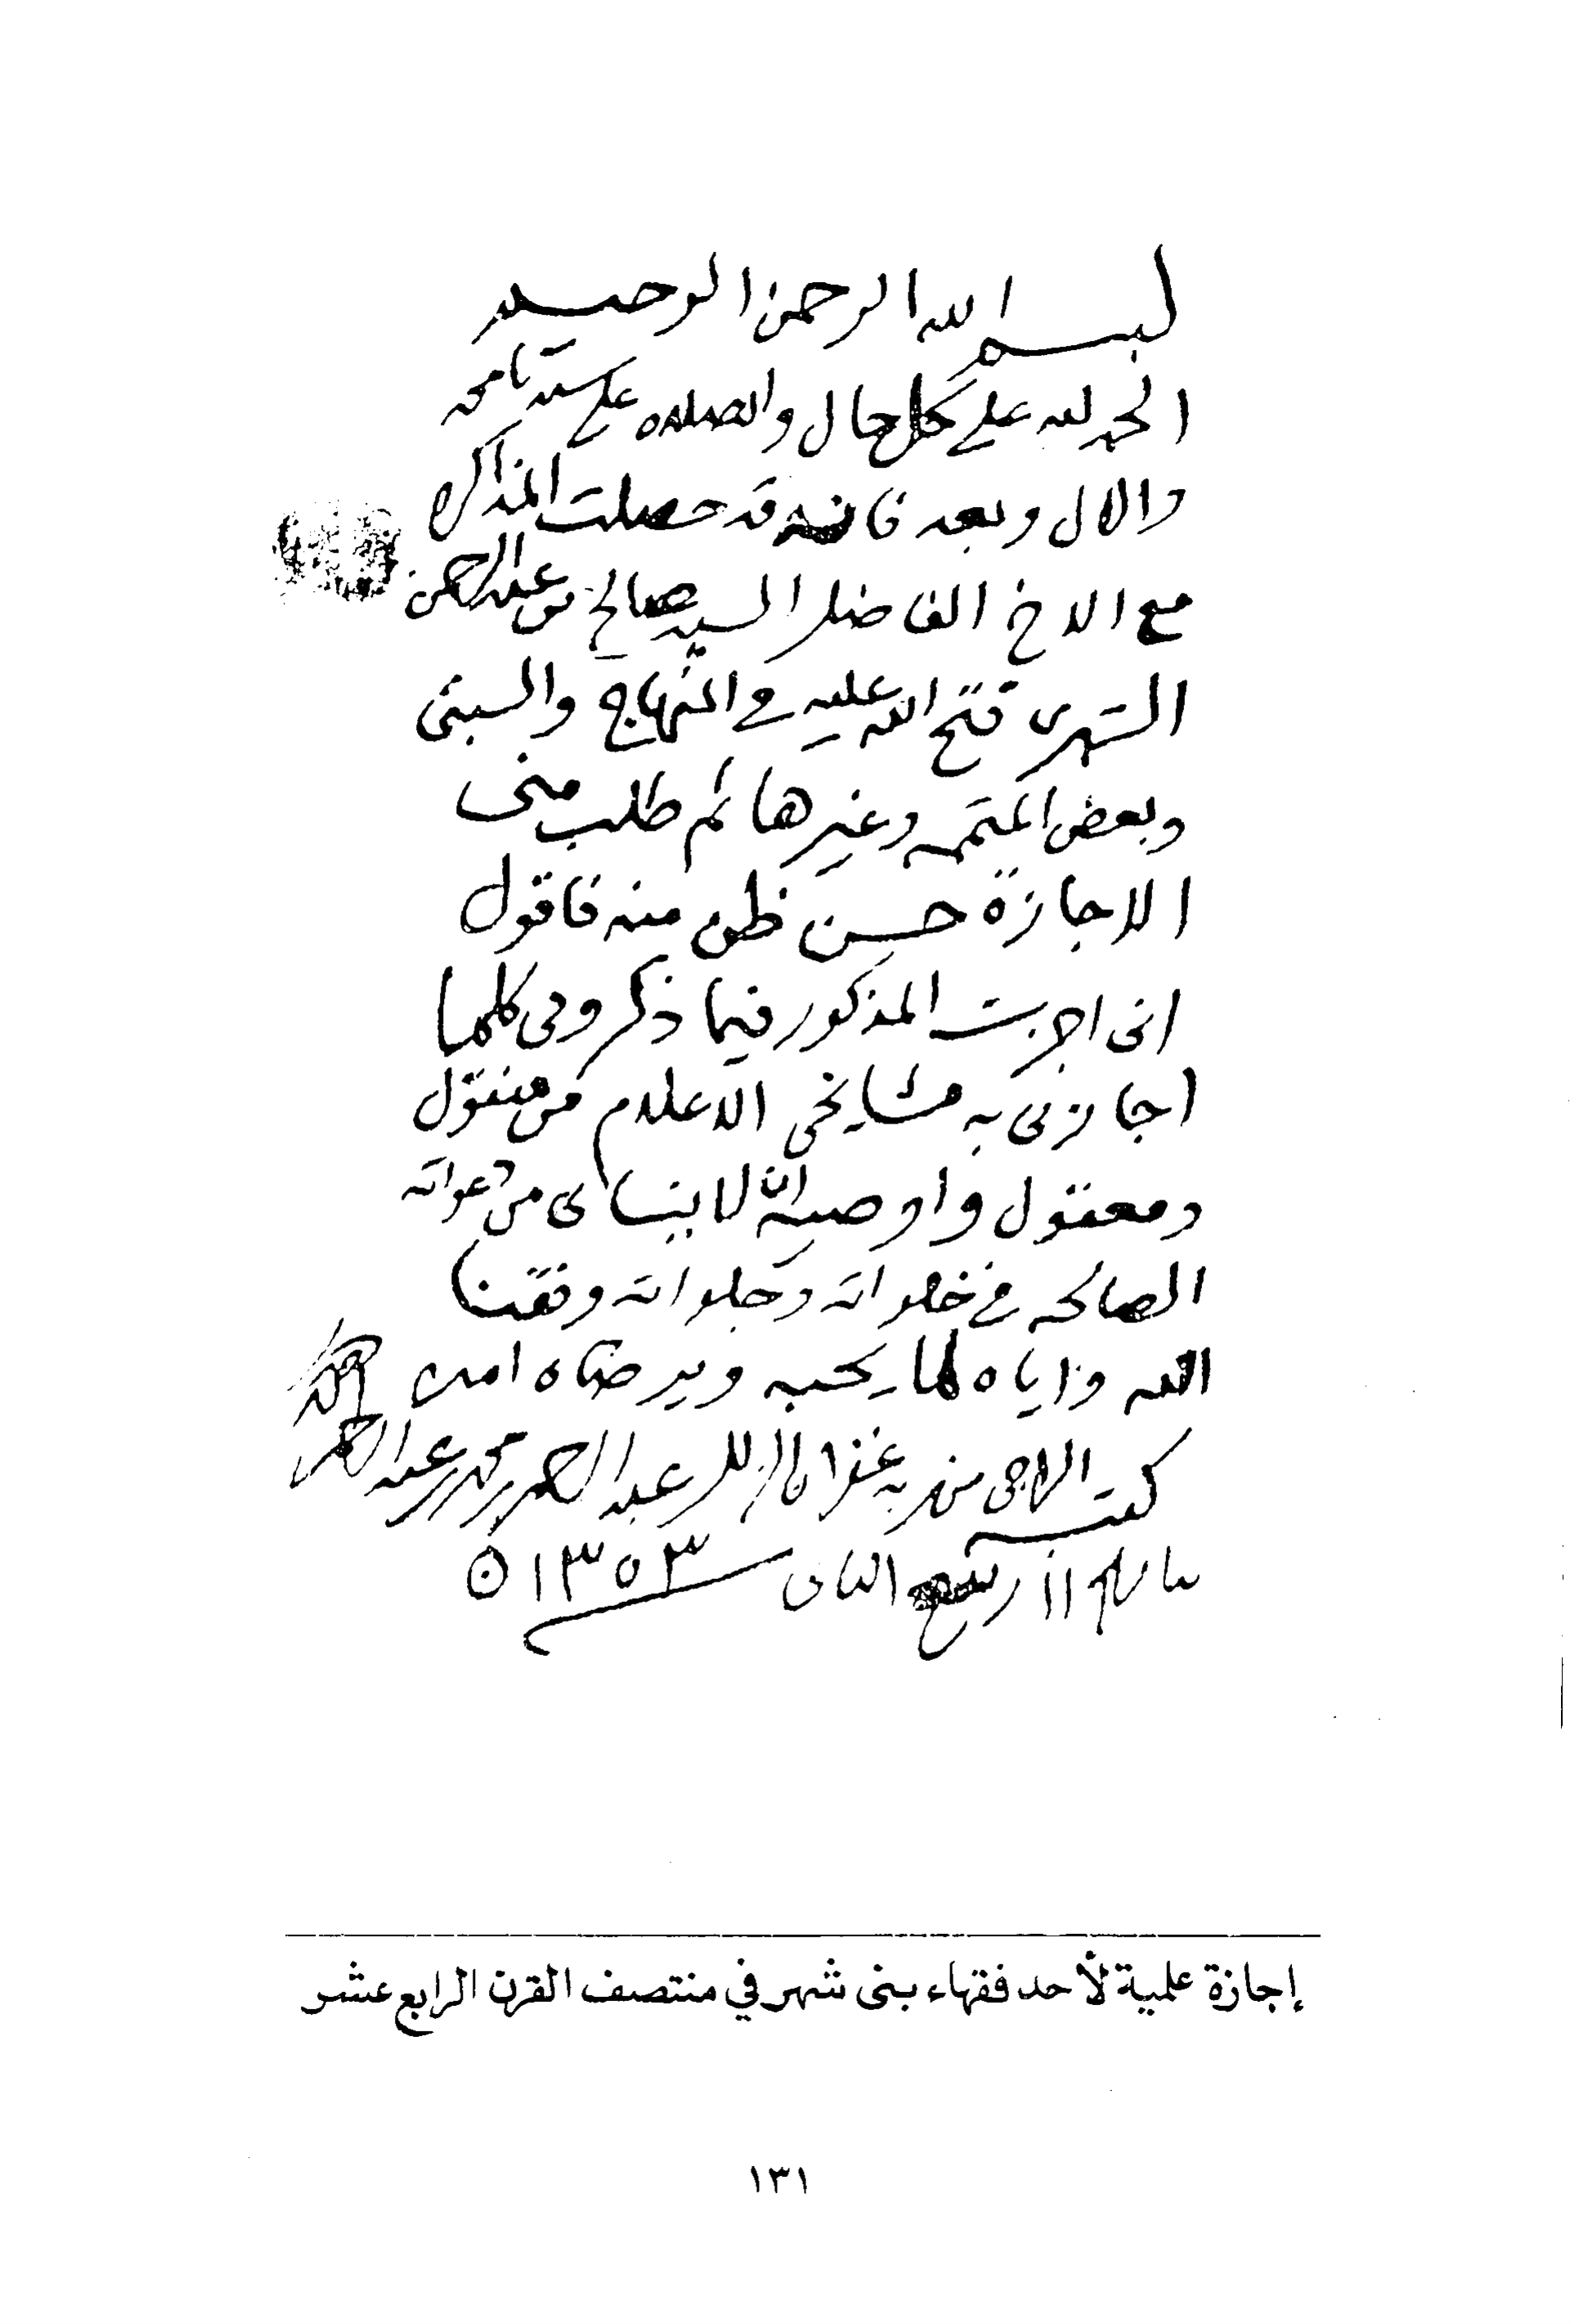 بسم الله الرحمن الرحيم
الحمد لله على كل حال والصلاه على سيدنا محمد
والال وبعد فانه قد حصلت المذاكره
مع الاخ الفاضل السيد صالح بن عبد الرحمن
الشهرى فتح الله عليه في المنهاج والسبتى
وبعض المتممه وغيرها ثم طلب منى
الاجازة حسن ظن منه فاقول
انى اجزت المذكور فيما ذكر وفى كلما
اجازنى به مشايخى الاعلام من منقول
ومعقول واوصيه ان لا ينسانى من دعواته
الصالحه في خلواته وجلواته وفقنا
الله واياه لما يحبه ويرضاه امين
كتبه الراجى من ربه غفران الزلل عبد الرحمن بن محمد بن عبد الرحمن
ربيع الثانى ١٣٥٣ه
إجازة علمية لأحد فقهاء بنى شهر في منتصف القرن الرابع عشر
١٣١